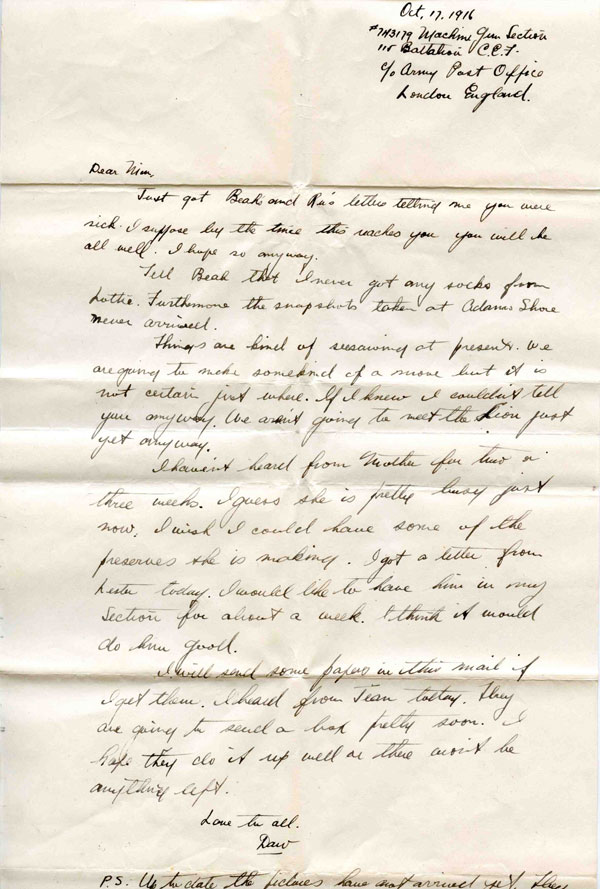 Oct, 17, 1916
#743179 Machine Gun Section
115 Battalion C.E.F.
c/o Army Post Office
London England.
Dear Mim,
Just got Beah and Ri's letters telling me you were
sick. I suppose by the time this reaches you you will be
all well. I hope so anyway.
Tell Beah that I never got any socks from
Lottie. Furthermore the snapshots taken at Adams Shore
never arrived.
Things are kind of seesawing at present. We
are going to make somekind of a move but it is
not certain just where. If I knew I couldn't tell
you anyway. We aren't going to meet the Lion just
yet anyway.
I haven't heard from Mother for two or
three weeks. I guess she is pretty busy just
now. I wish I could have some of the
preserves she is making. I got a letter from
Lester today. I would like to have him in my
Section for about a week. I think it would
do him good.
I will send some papers in this mail if
I get them. I heard from Jean today. They
are going to send a box pretty soon. I
hope they do it up well or there won't be
anything left.
Love to all.
Daw
P.S. Up to date the pictures have not arrived yet. They